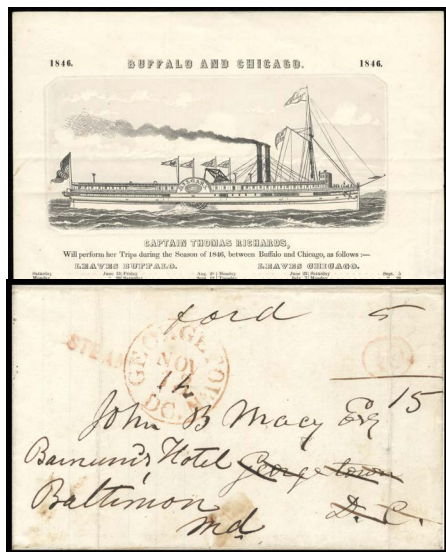 1846. BUFFALO AND CHICAGO. 1846.
CAPTAIN THOMAS RICHARDS,
Will perform her Trips during the Season of 1846, between Buffalo and Chicago, as follows :—
LEAVES BUFFALO. LEAVES CHICAGO.
ford 5
STEAM
GEORGETOWN
NOV
14
D.C.
15
John B Macy Esq
Barnum's Hotel Georgetown
Baltimore D. C.
Md